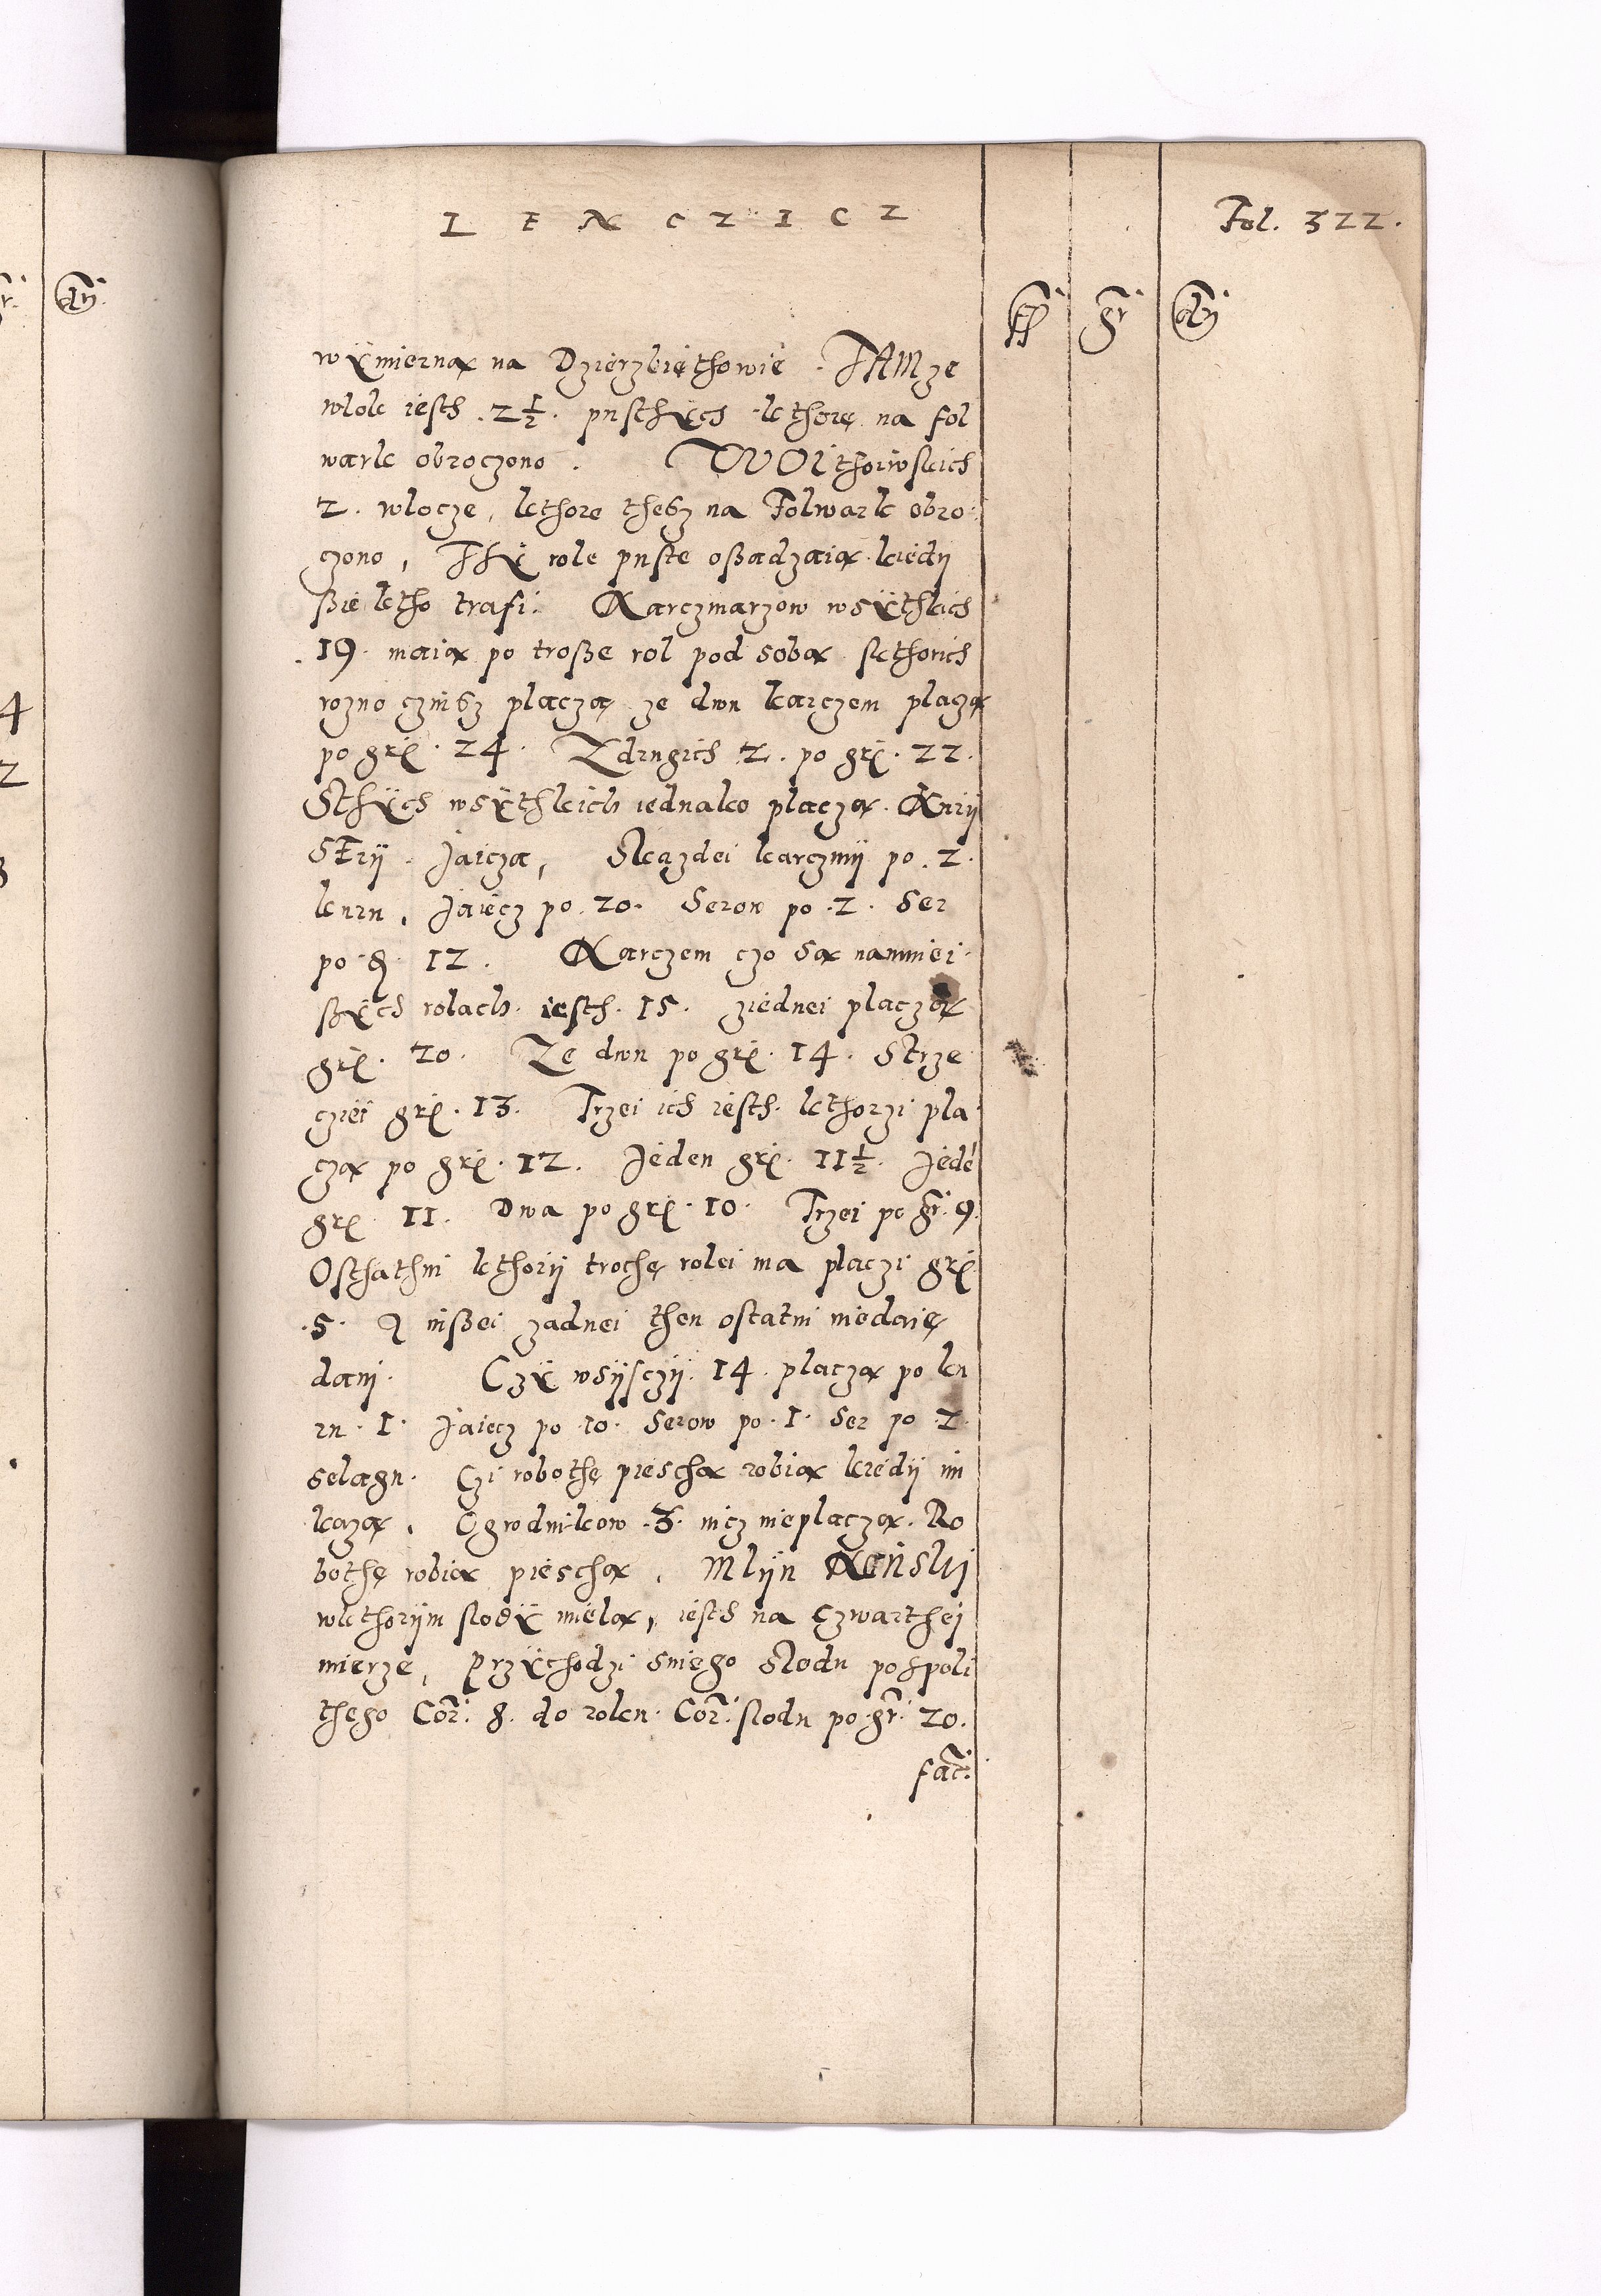 LENCZICZ
Fol. 322.
fl gr dn
wÿmierną na Dzierzbięthowie. TAMże
wlok iesth .2½. pusthÿch kthorę na fol
wark obroczono. WOithowskich
2. wlocze, kthore thesz na Folwark obro
czono, THÿ role puste oßadzaią kiedÿ
ßie ktho trafi. Karczmarzow wsÿthkich
.19. maią po troße rol pod sobą sktorich
rozno czinsz placzą ze dwu karczem placzą
po grꝭ. 24. Zdrugich 2. po grꝭ. 22.
Sthÿch wsÿthkich iednako placzą. Kurÿ
SErÿ. Jaicza, Skazdei karczmÿ po .2.
kuru, Jaiecz po .20. Serow po .2. Ser
po ꝗ 12. Karczem czo są namniei
ßÿch rolach. iesth. 15. ziednei placzą
grꝭ. 20. Ze dwu po grꝭ. 14. STrze
cziei grꝭ. 13. Trzei ich iesth. kthorzi pla
czą po grꝭ. 12. Jeden grꝭ. 11½. Jedē
grꝭ. 11. Dwa po grꝭ. 10. Trzei po gr̄. 9.
Osthathni kthorÿ trochę rolei ma placzi grꝭ
.5. A inßei zadnei then ostatni niedaię
dani. Czÿ wsÿsczÿ. 14. placzą po ku
ru .1. Jaiecz po .10. Serow po .1. Ser po .2.
selągu. Czi robothę pieschą robią kiedÿ im
każą. Ogrodnikow .3. nicz nieplaczą. Ro
bothę robią pieschą. Mlÿn KOŃSKi
wkthorÿm slodÿ mielą, iesth na Czwarthej
mierze, Przÿchodzi sniego Slodu pospoli
thego Cor̄: 8. do roku. Cor̄: slodu po gr̄. 20.
fac̄: